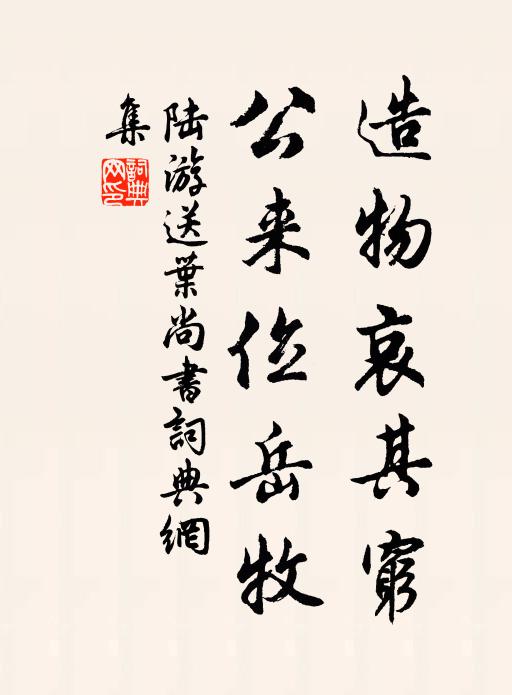 造物哀其窮
公来位岳牧
陆游送葉尚書詞典網
集
詞典网印